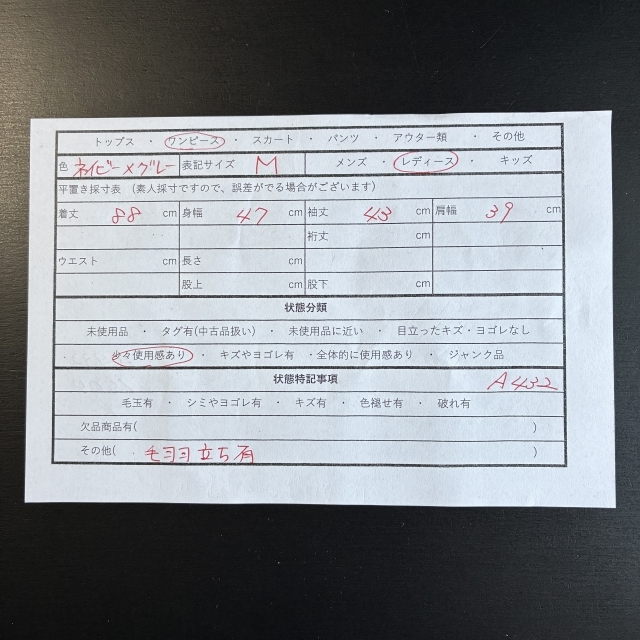 トップス ・ ワンピース ・ スカート ・ パンツ ・ アウター類 ・ その他
色 ネイビー×グレー 表記サイズ M メンズ ・ レディース ・ キッズ
平置き採寸表 （素人採寸ですので、誤差がでる場合がございます）
着丈 88 cm 身幅 47 cm 袖丈 43 cm 肩幅 39 cm
裄丈 cm
ウエスト cm 長さ cm
股上 cm 股下 cm
状態分類
未使用品 ・ タグ有(中古品扱い) ・ 未使用品に近い ・ 目立ったキズ・ヨゴレなし
・ 少々使用感あり ・ キズやヨゴレ有 ・全体的に使用感あり ・ ジャンク品
状態特記事項 A432
毛玉有 ・ シミやヨゴレ有 ・ キズ有 ・ 色褪せ有 ・ 破れ有
欠品商品有( )
その他( . 毛羽立ち有 )